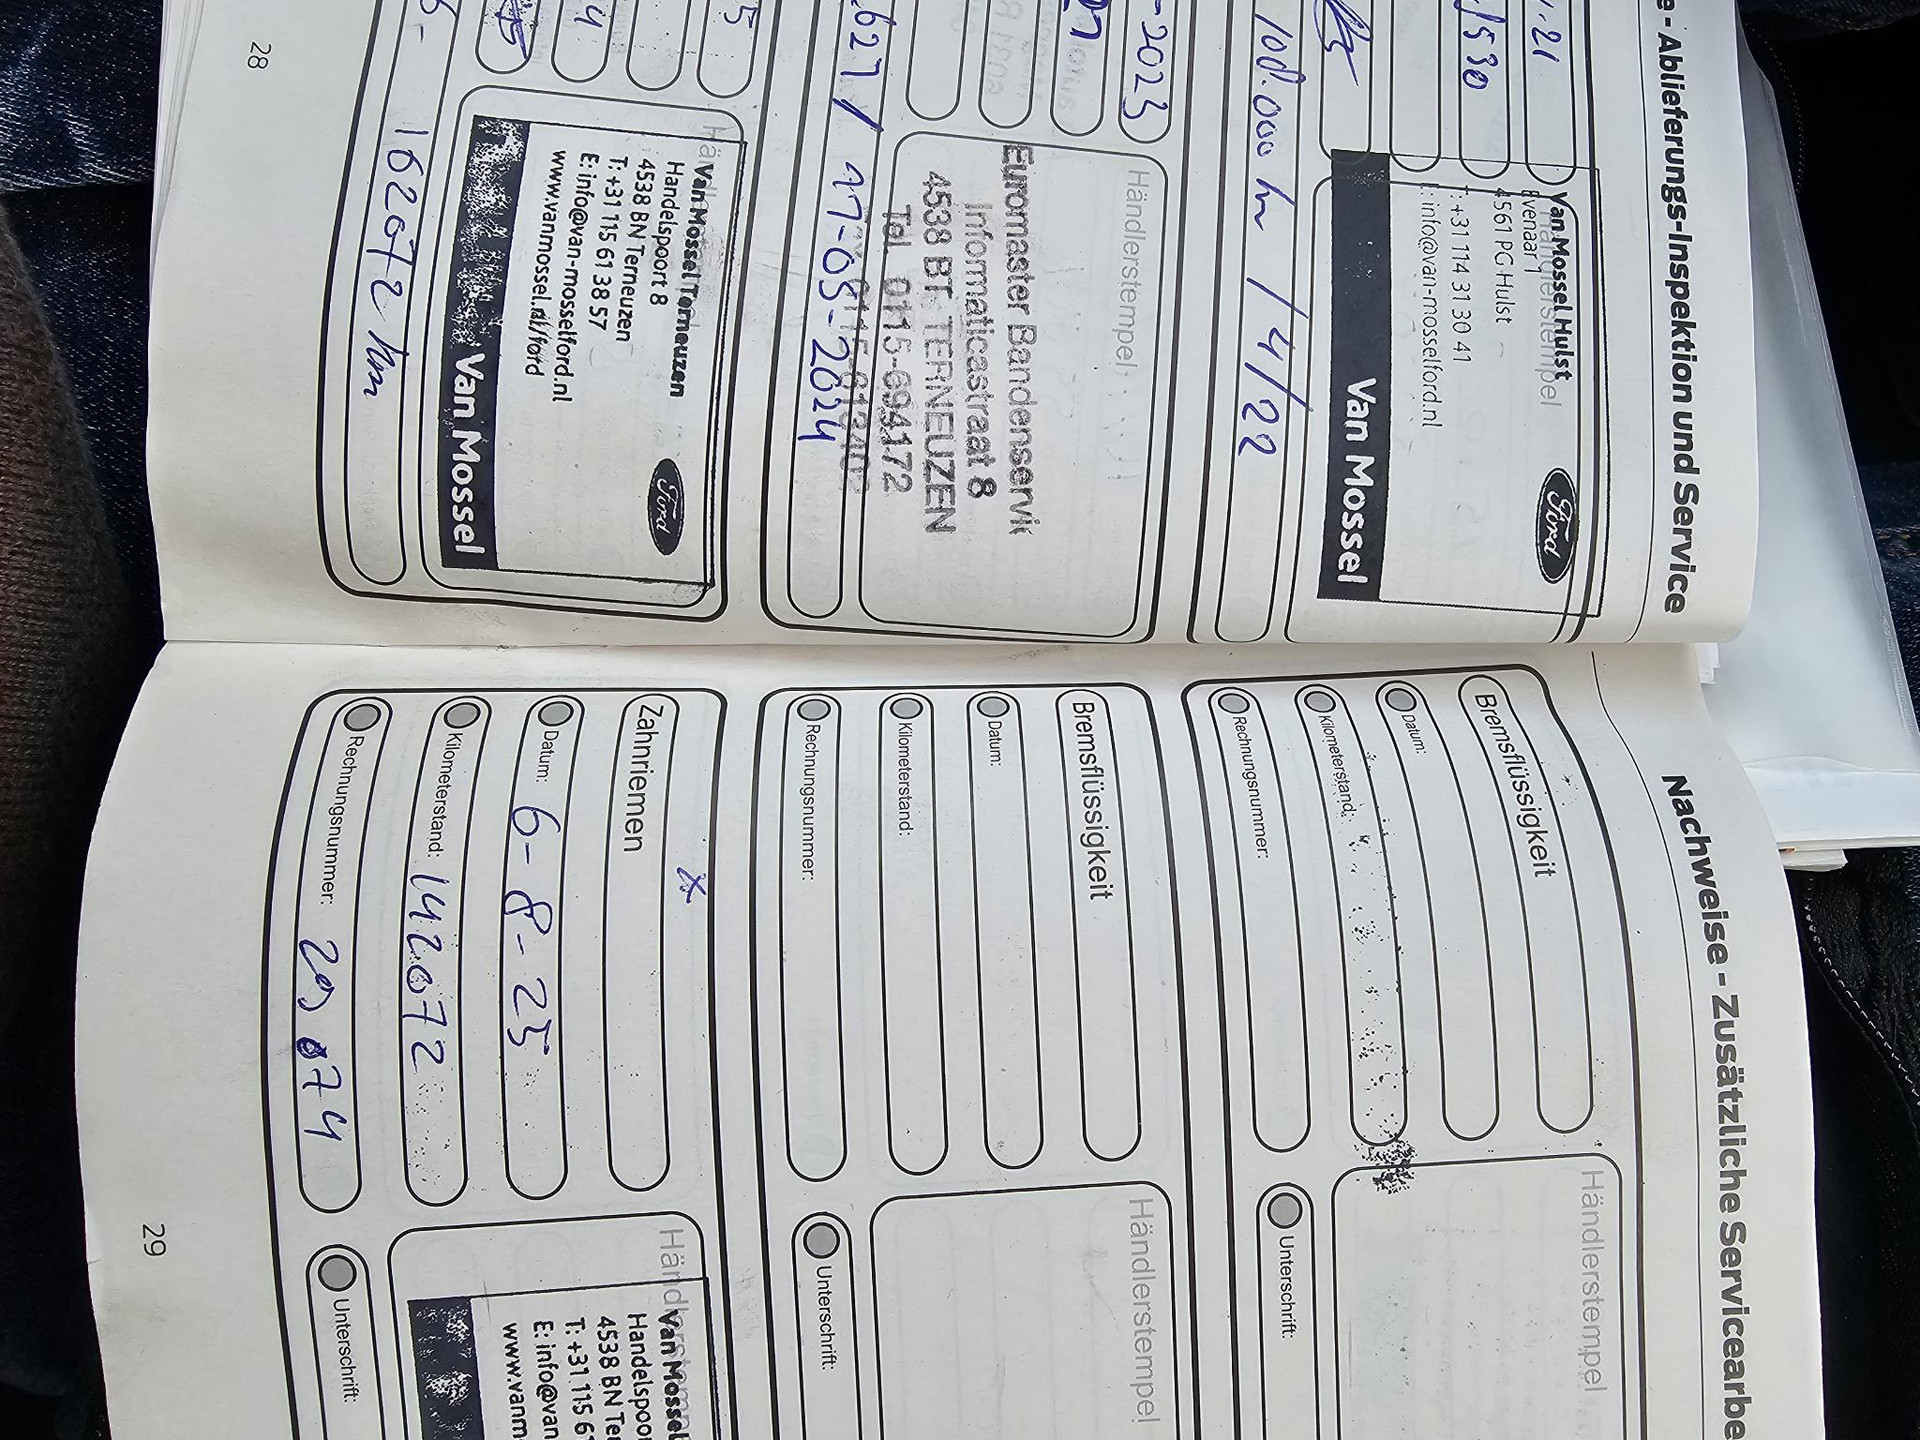 e - Ablieferungs-Inspektion und Service
.21
/530
Van Mossel Hulst
Händlerstempel
Evenaar 1
4561 PG Hulst
T: +31 114 31 30 41
E: info@van-mosselford.nl
Ford
Van Mossel
100.000 km / 4/22
-2023
Händlerstempel
Euromaster Bandenservic
Informaticastraat 8
4538 BT TERNEUZEN
Tel. 0115-694172
627 / 17-03-2024
5
4
Händlerstempel
Van Mossel Terneuzen
Handelspoort 8
4538 BN Terneuzen
T: +31 115 61 38 57
E: info@van-mosselford.nl
www.vanmossel.nl/ford
Ford
Van Mossel
162072 km
28
Nachweise - Zusätzliche Servicearbe
Bremsflüssigkeit
Datum:
Kilometerstand:
Rechnungsnummer:
Händlerstempel
Unterschrift:
Bremsflüssigkeit
Datum:
Kilometerstand:
Rechnungsnummer:
Händlerstempel
Unterschrift:
x
Zahnriemen
Datum: 6-8-25
Kilometerstand: 142072
Rechnungsnummer:
Händlerstempel
Van Mossel
Handelspoo
4538 BN Te
T: +31 115 6
E: info@van
www.vanm
Unterschrift:
29